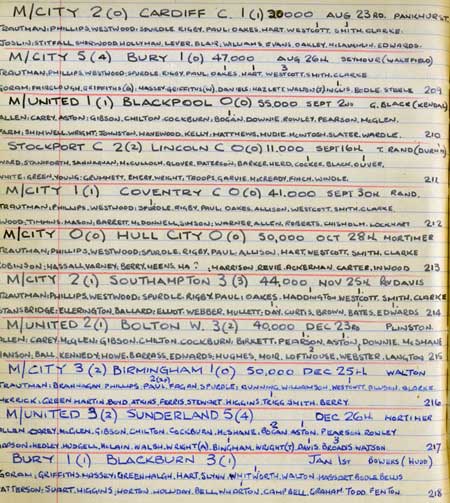 M/CITY 2(0) CARDIFF C. 1(1) 30000 AUG 23RD. PANKHURST.
TRAUTMAN; PHILLIPS, WESTWOOD; SPURDLE, RIGBY, PAUL; OAKES, HART, WESTCOTT, SMITH, CLARKE.
JOSLIN; STITFALL, SHERWOOD; HOLLYMAN, LEVER, BLAIR, WILLIAMS, EVANS, OAKLEY, McLAUGHLIN, EDWARDS.
M/CITY 5(4) BURY 1(0) 47,000 AUG 26th SEYMOUR (WAKEFIELD)
TRAUTMAN, PHILLIPS, WESTWOOD; SPURDLE, RIGBY, PAUL, OAKES, HART, WESTCOTT, SMITH, CLARKE
GORAM, FAIRCLOUGH, GRIFFITHS(G), MASSEY, GRIFFITHS(W), DANIELS; HAZLETT, WALSH(T), INGLIS, BODLE, STEELE 209
M/UNITED 1(1) BLACKPOOL 0(0) 55,000 SEPT 2ND G. BLACK (KENDAL)
ALLEN; CAREY, ASTON; GIBSON, CHILTON, COCKBURN; BOGAN, DOWNIE, ROWLEY, PEARSON, McGLEN.
FARM; SHIMWELL, WRIGHT; JOHNSTON, HAYEWOOD, KELLY, MATTHEWS, MUDIE, McINTOSH, SLATER, WARDLE. 210
STOCKPORT C 2(2) LINCOLN C 0(0) 11,000 SEPT 16th T. RAND (DURHAM)
WARD, STANIFORTH, McCULLOCH, GLOVER, PATERSON, BARKER, HERD, COCKER, BLACK, OLIVER,
WHITE, GREEN, YOUNG; GRUMMETT, EMERY, WRIGHT, TROOPS, GARVIE, McCREADY, FINCH, WINDLE. 211
M/CITY 1(1) COVENTRY C 0(0) 41,000 SEPT 30th RAND.
TRAUTMAN, PHILLIPS, WESTWOOD; SPURDLE, RIGBY, PAUL, OAKES, ALLISON, WESTCOTT, SMITH, CLARKE
WOOD; TIMMINS, MASON, BARRETT, McDONNELL, SIMSON; WARNER, ALLEN, ROBERTS, CHISHOLM, LOCKHART 212
M/CITY 0(0) HULL CITY 0(0) 50,000 OCT 28th MORTIMER
TRAUTMAN; PHILLIPS, WESTWOOD; SPURDLE, RIGBY, PAUL; ALLISON, HART, WESTCOTT, SMITH, CLARKE
ROBINSON; HASSALL, VARNEY, BERRY, MEENS, HARRISON, REVIE, ACKERMAN, CARTER, INWOOD 213
M/CITY 2(1) SOUTHAMPTON 3(3) 44,000 NOV 25th REV DAVIS
TRAUTMAN; PHILLIPS, WESTWOOD; SPURDLE, RIGBY, PAUL; OAKES, HADDINGTON, WESTCOTT, SMITH, CLARKE
STANSBRIDGE; ELLERINGTON, BALLARD; ELLIOT, WEBBER, MULLETT; DAY, CURTIS, BROWN, BATES, EDWARDS 214
M/UNITED 2(1) BOLTON W. 3(2) 40,000 DEC 23rd PLINSTON.
ALLEN; CAREY, McGLEN; GIBSON, CHILTON, COCKBURN; BIRKETT, PEARSON, ASTON, DOWNIE, McSHANE
HANSON, BALL, KENNEDY; HOWE, BARRASS, EDWARDS; HUGHES, MOIR, LOFTHOUSE, WEBSTER, LANGTON 215
M/CITY 3(2) BIRMINGHAM 1(0) 50,000 DEC 25th WALTON
TRAUTMAN; BRANNAGAN, PHILLIPS, PAUL, FAGAN, SPURDLE; GUNNING, WILLIAMSON, WESTCOTT, CLARKE.
MERRICK; GREEN, MARTIN, BOYD, ATKINS, FERRIS, STEWART, HIGGINS, TRIGG, SMITH, BERRY. 216
M/UNITED 3(2) SUNDERLAND 5(4) DEC 26th MORTIMER
ALLEN CAREY, McGLEN, GIBSON, CHILTON, COCKBURN, McSHANE, BOGAN, ASTON, PEARSON, ROWLEY
MAPSON, HEDLEY, HUDGELL, McLAIN, WALSH, WRIGHT(A), BINGHAM, WRIGHT(T), DAVIS, BROADIS, WATSON 217
BURY 1(1) BLACKBURN 3(1) JAN 1ST BOWERS (HUDD)
GORAM, GRIFFITHS, MASSEY, GREENHALGH, HART, SLYNN, WHITWORTH, WALTON, HAZLETT, BODLE, BELLIS
PATTERSON, SUART, HIGGINS, HORTON, HOLLIDAY, BELL, WHARTON, CAMPBELL, GRAHAM, TODD, FENTON 218